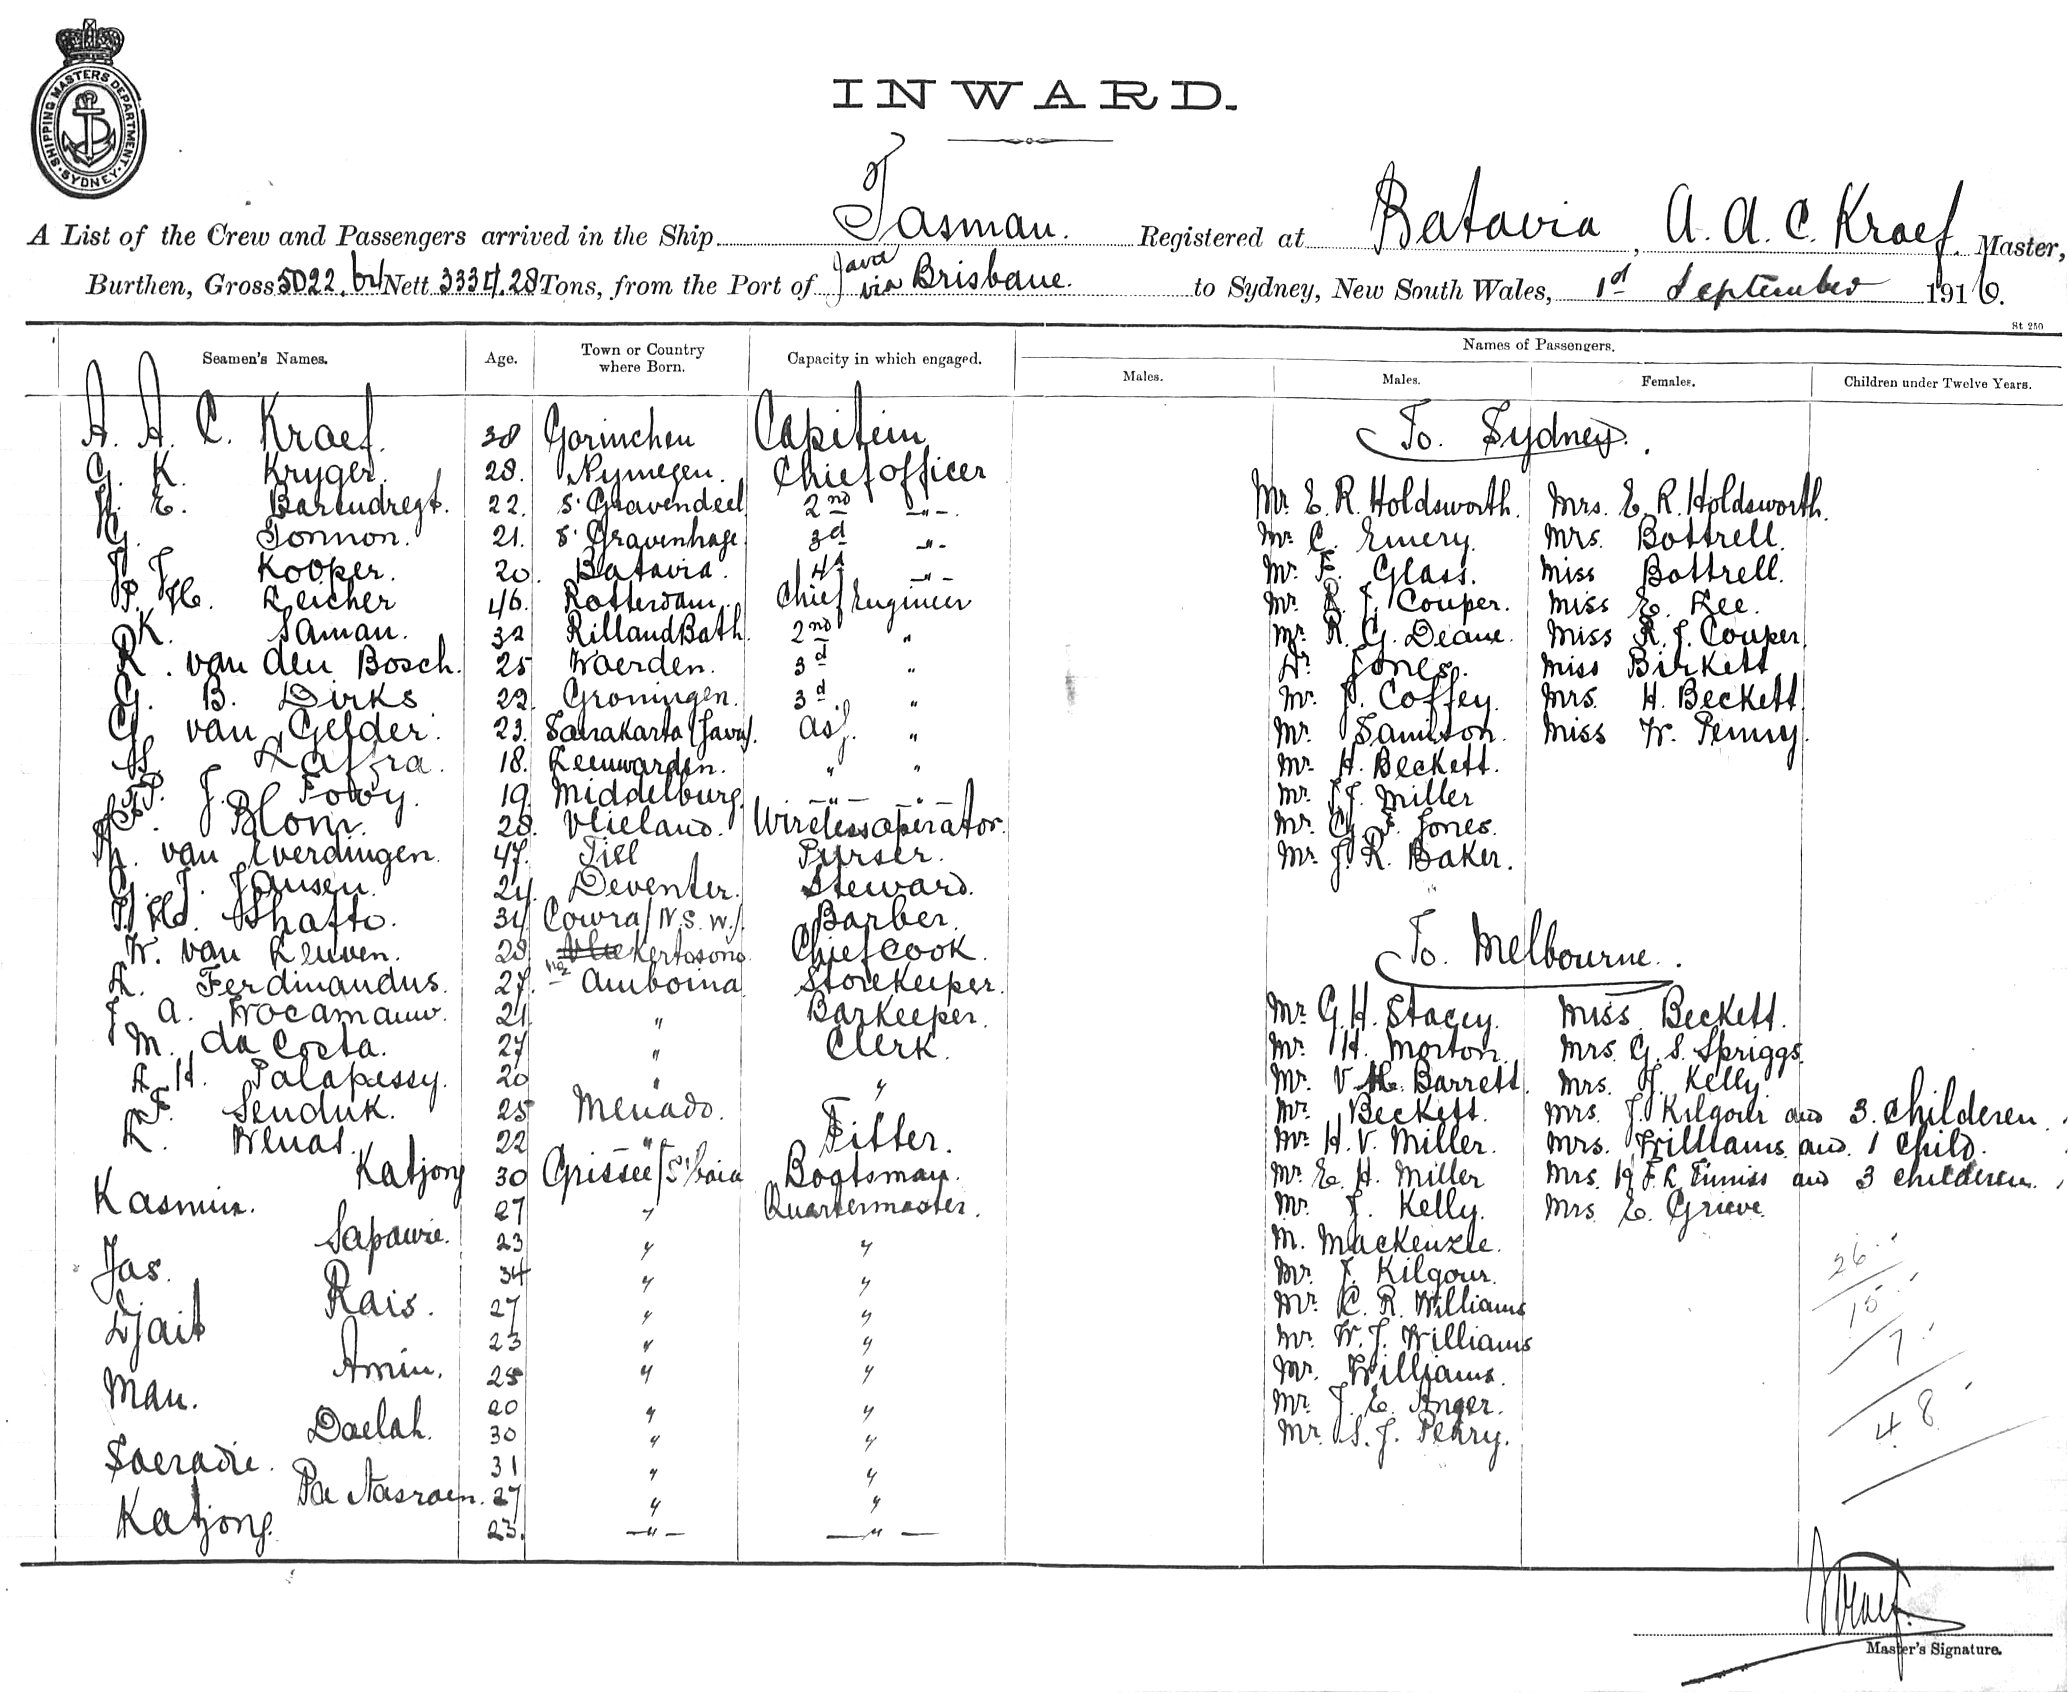 SHIPPING MASTERS DEPARTMENT
SYDNEY
INWARD.
A List of the Crew and Passengers arrived in the Ship Tasman. Registered at Batavia, A. A. C. Kraef. Master,
Burthen, Gross 5022. Nett 3334.28 Tons, from the Port of Java via Brisbane. to Sydney, New South Wales, 1st September 1916.
St 250
Seamen's Names. Age. Town or Country where Born. Capacity in which engaged. Names of Passengers.
Males. Males. Females. Children under Twelve Years.
A. A. C. Kraef. 38 Gorinchen Capitein To Sydney.
G. K. Kryger. 28. Nymegen. Chief officer
H. E. Barendregt. 22. S' Gravendeel 2nd -"-. Mr. E. R. Holdsworth. Mrs. E. R. Holdsworth.
G. Tonnon. 21. S' Gravenhage 3d -"- Mr C. Emery. Mrs. Bottrell.
J. J. Kooper. 20. Batavia. 4d -"- Mr. F. Glass. Miss Bottrell.
P. H. Leicher 46. Rotterdam. Chief Engineer Mr. R. J. Couper. Miss E. Lee.
K. Saman. 32 Rilland Bath. 2nd " Mr R. G. Deane. Miss R. J. Couper.
R. van den Bosch. 25 Woerden. 3d " Dr. Jones. Miss Birkett
G. B. Dirks 22. Groningen. 3d. " Mr. J. Coffey. Mrs. H. Beckett.
G. van Gelder. 23. Soerakarta (Java). Asj. " Mr. Samilton. Miss W. Penny.
18. Leeuwarden. " " Mr H. Beckett.
P. J. 19. Middelburg. -"- -"- Mr. J. J. Miller
Blom. 28. Vlieland. Wireless operator. Mr. G. F. Jones.
van Everdingen. 47. Tiel Purser. Mr. J. R. Baker.
G. J. Jansen. 24. Deventer. Steward.
J. H. Shafto. 34 Cowra (N.S.W.). Barber.
W. van Leuven. 28. Kertosono. Chief cook To Melbourne.
L. Ferdinandus. 27. Amboina Storekeeper.
J. A. 21. " Barkeeper. Mr G. H. Stacey. Miss Beckett.
M. da Costa. 27 " Clerk. Mr H. Morton. Mrs. G. S. Spriggs.
A. H. Palapessy. 20 " " Mr. V. H. Barrett. Mrs. J. Kelly
F. Senduk. 25 Menado. " Mr. Beckett. Mrs. J. Kilgour and 3 childeren.
L. Wenas. 22 " Fitter. Mr H. V. Miller. Mrs. Williams and 1 child.
Katjong 30 Grissee/S'baia Bootsman. Mr. E. H. Miller Mrs. and 3 childeren.
Kasmin. 27 " Quartermaster. Mr. J. Kelly. Mrs E. Grieve
Sapawie. 23 " " M. Mackenzie.
Jas. 34 " " Mr. J. Kilgour.
Rais. 27 " " Mr. C. R. Williams
Djait 23 " " Mr. W. J. Williams
Amin. 25 " " Mr. Williams.
Man. 20 " " Mr. J. E. Anger.
Daelah. 30 " " Mr. S. J. Penry.
Soeradie. 31 " "
Pa Nasroen. 27 " "
Katjong. 23. -"- -"-
26
15
7
48
Kraef.
Master's Signature.